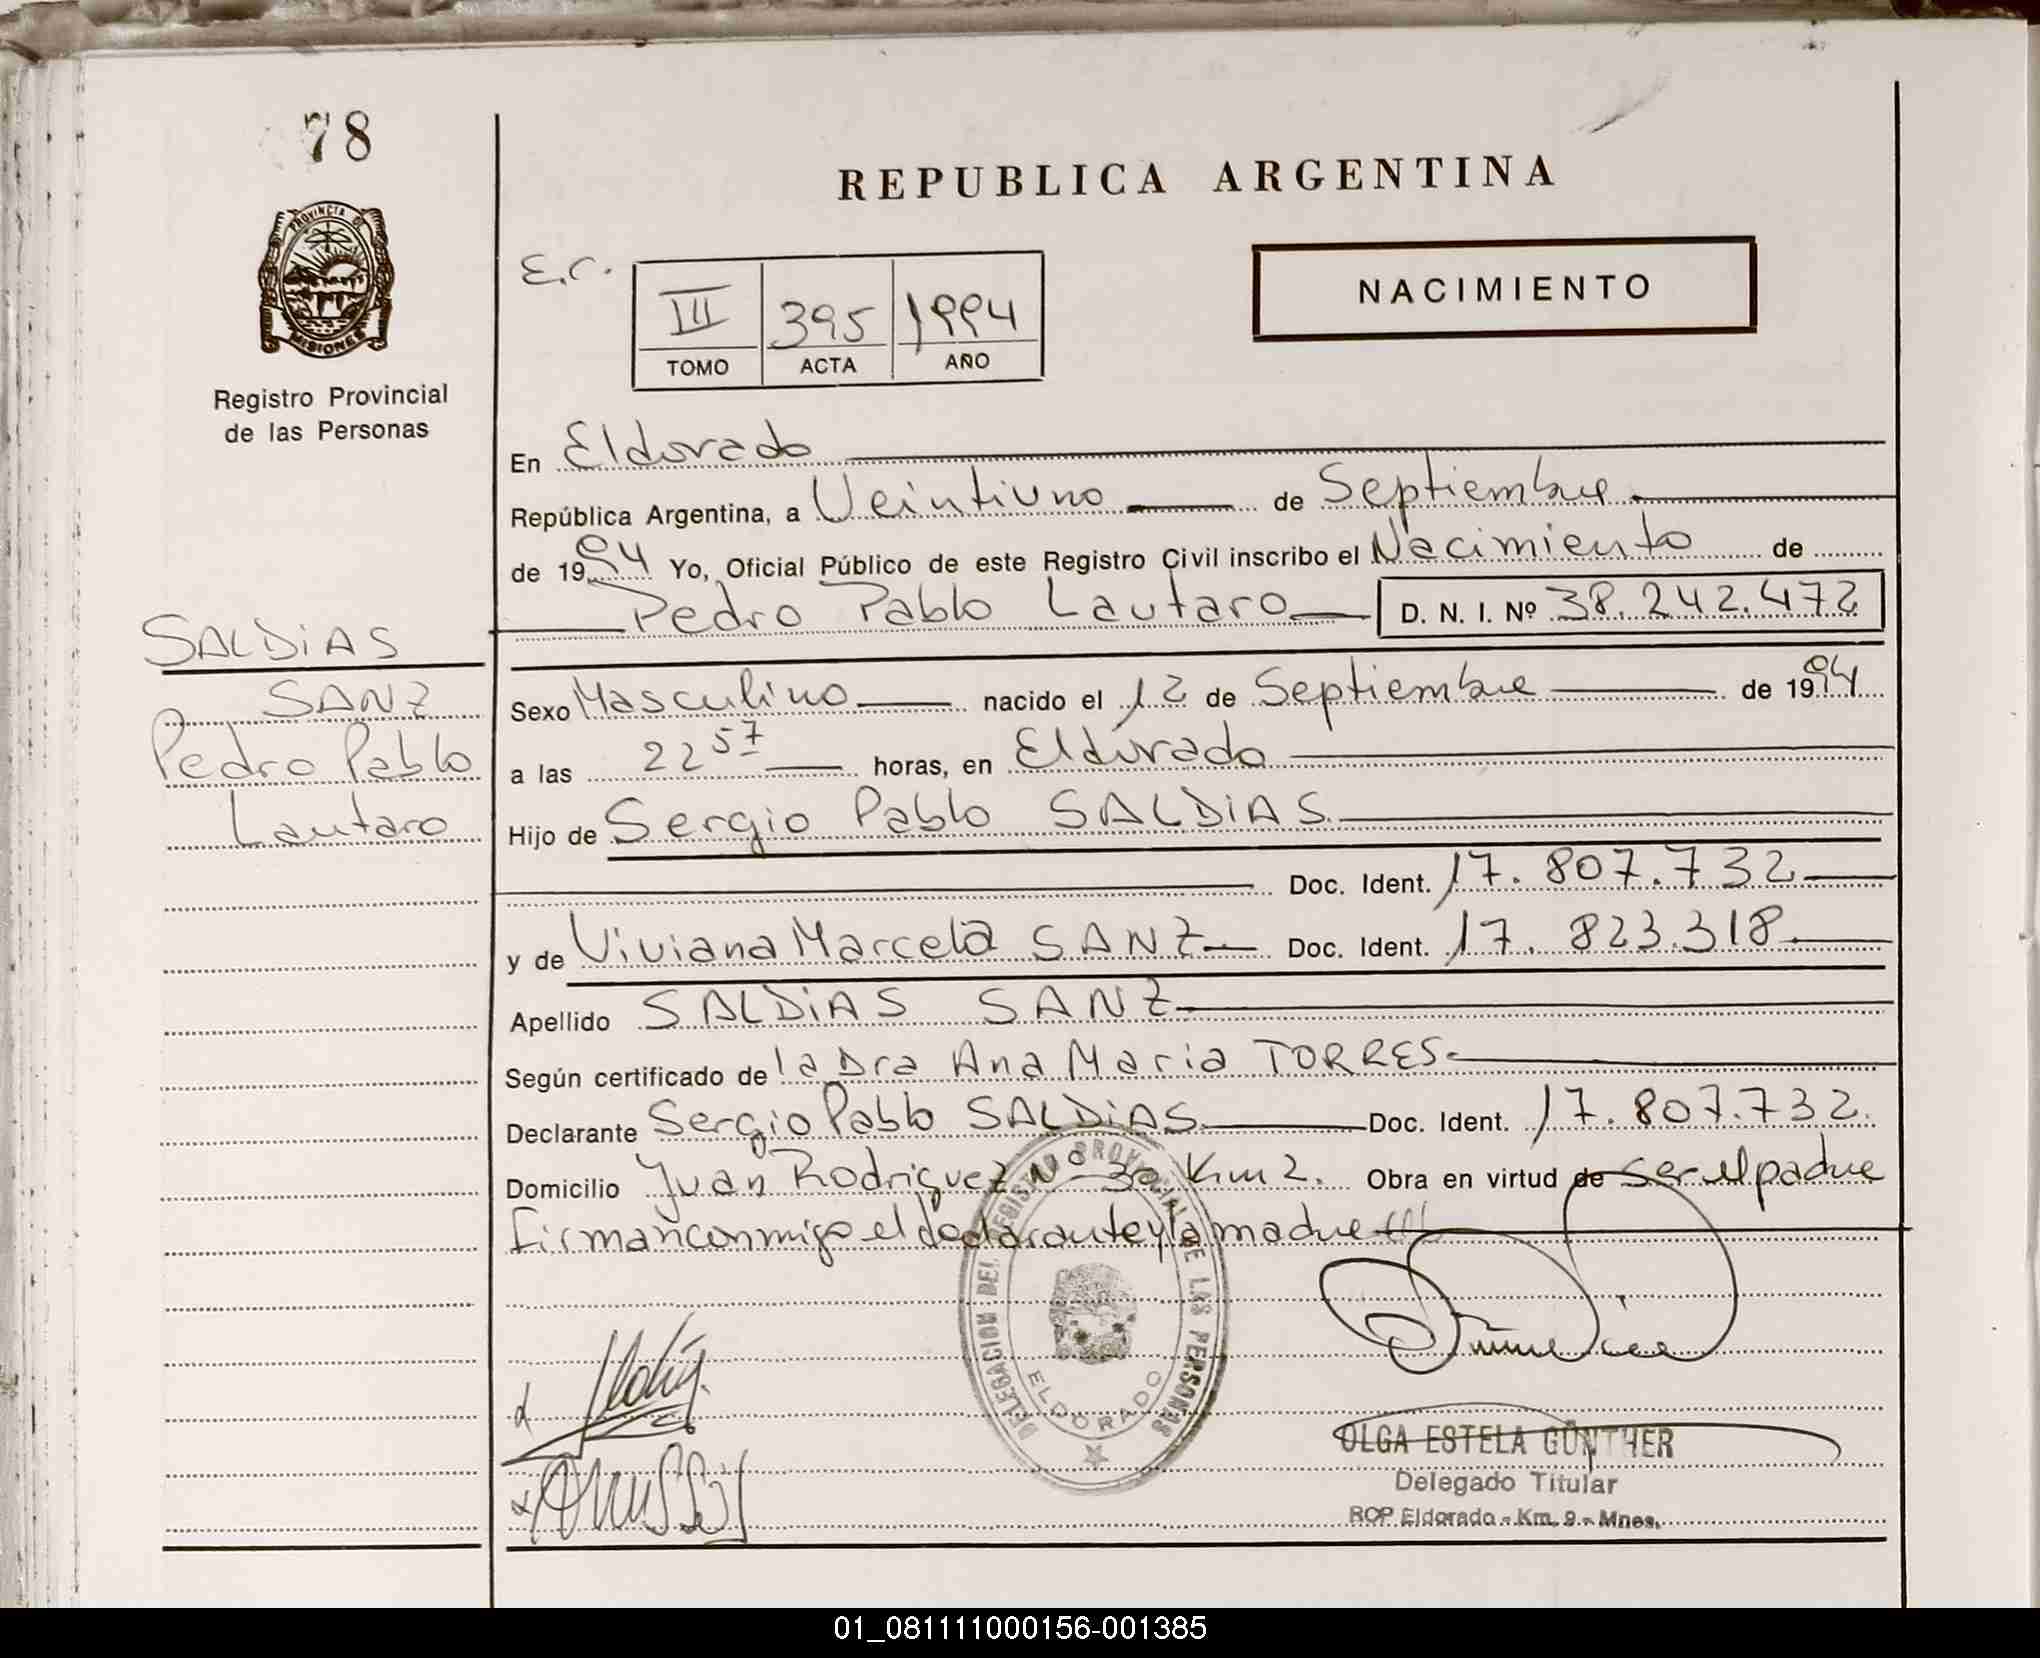 78
PROVINCIA DE
MISIONES
Registro Provincial
de las Personas
REPUBLICA ARGENTINA
E.C.
III 395 1994
TOMO ACTA AÑO
NACIMIENTO
En Eldorado
República Argentina, a Veintiuno de Septiembre
de 1994 Yo, Oficial Público de este Registro Civil inscribo el Nacimiento de
Pedro Pablo Lautaro D. N. I. Nº 38.242.472
SALDIAS
SANZ
Pedro Pablo
Lautaro
Sexo Masculino nacido el 12 de Septiembre de 1994
a las 22 57 horas, en Eldorado
Hijo de Sergio Pablo SALDIAS
Doc. Ident. 17.807.732
y de Viviana Marcela SANZ Doc. Ident. 17.823.318
Apellido SALDIAS SANZ
Según certificado de la Dra Ana Maria TORRES
Declarante Sergio Pablo SALDIAS Doc. Ident. 17.807.732
Domicilio Juan Rodriguez Nº 30 Km 2. Obra en virtud de ser el padre
firman conmigo el declarante y la madre
DELEGACION DEL REGISTRO PROVINCIAL DE LAS PERSONAS
ELDORADO
OLGA ESTELA GÜNTHER
Delegado Titular
RCP Eldorado - Km. 9 - Mnes.
01_081111000156-001385